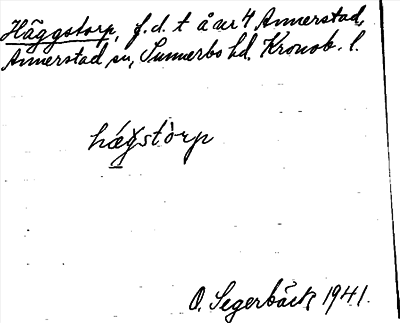 Häggstorp, f.d. t å ar 4 Annerstad,
Annerstad sn, Sunnerbo hd, Kronob. l.
O. Segerbäck 1941.